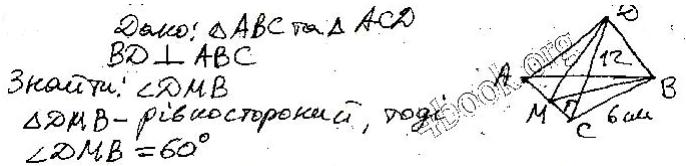 Дано: △ABC та △ACD
BD ⊥ ABC
Знайти: ∠DMB
△DMB - рівносторонній, тоді
∠DMB = 60°
D
A
12
B
M
C
6 см
4book.org